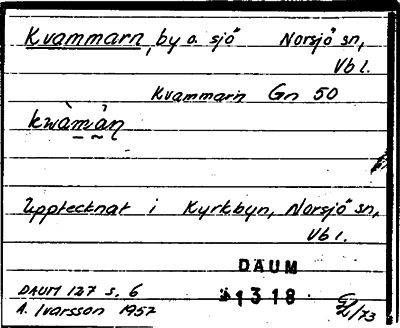 Kvammarn, by o. sjö Norsjö sn,
Vbl.
Kvammarn Gn 50
kwàmàn̥
Upptecknat i Kyrkbyn, Norsjö sn,
Vbl.
DAUM
1318
DAUM 127 s. 6
A. Ivarsson 1952
/73